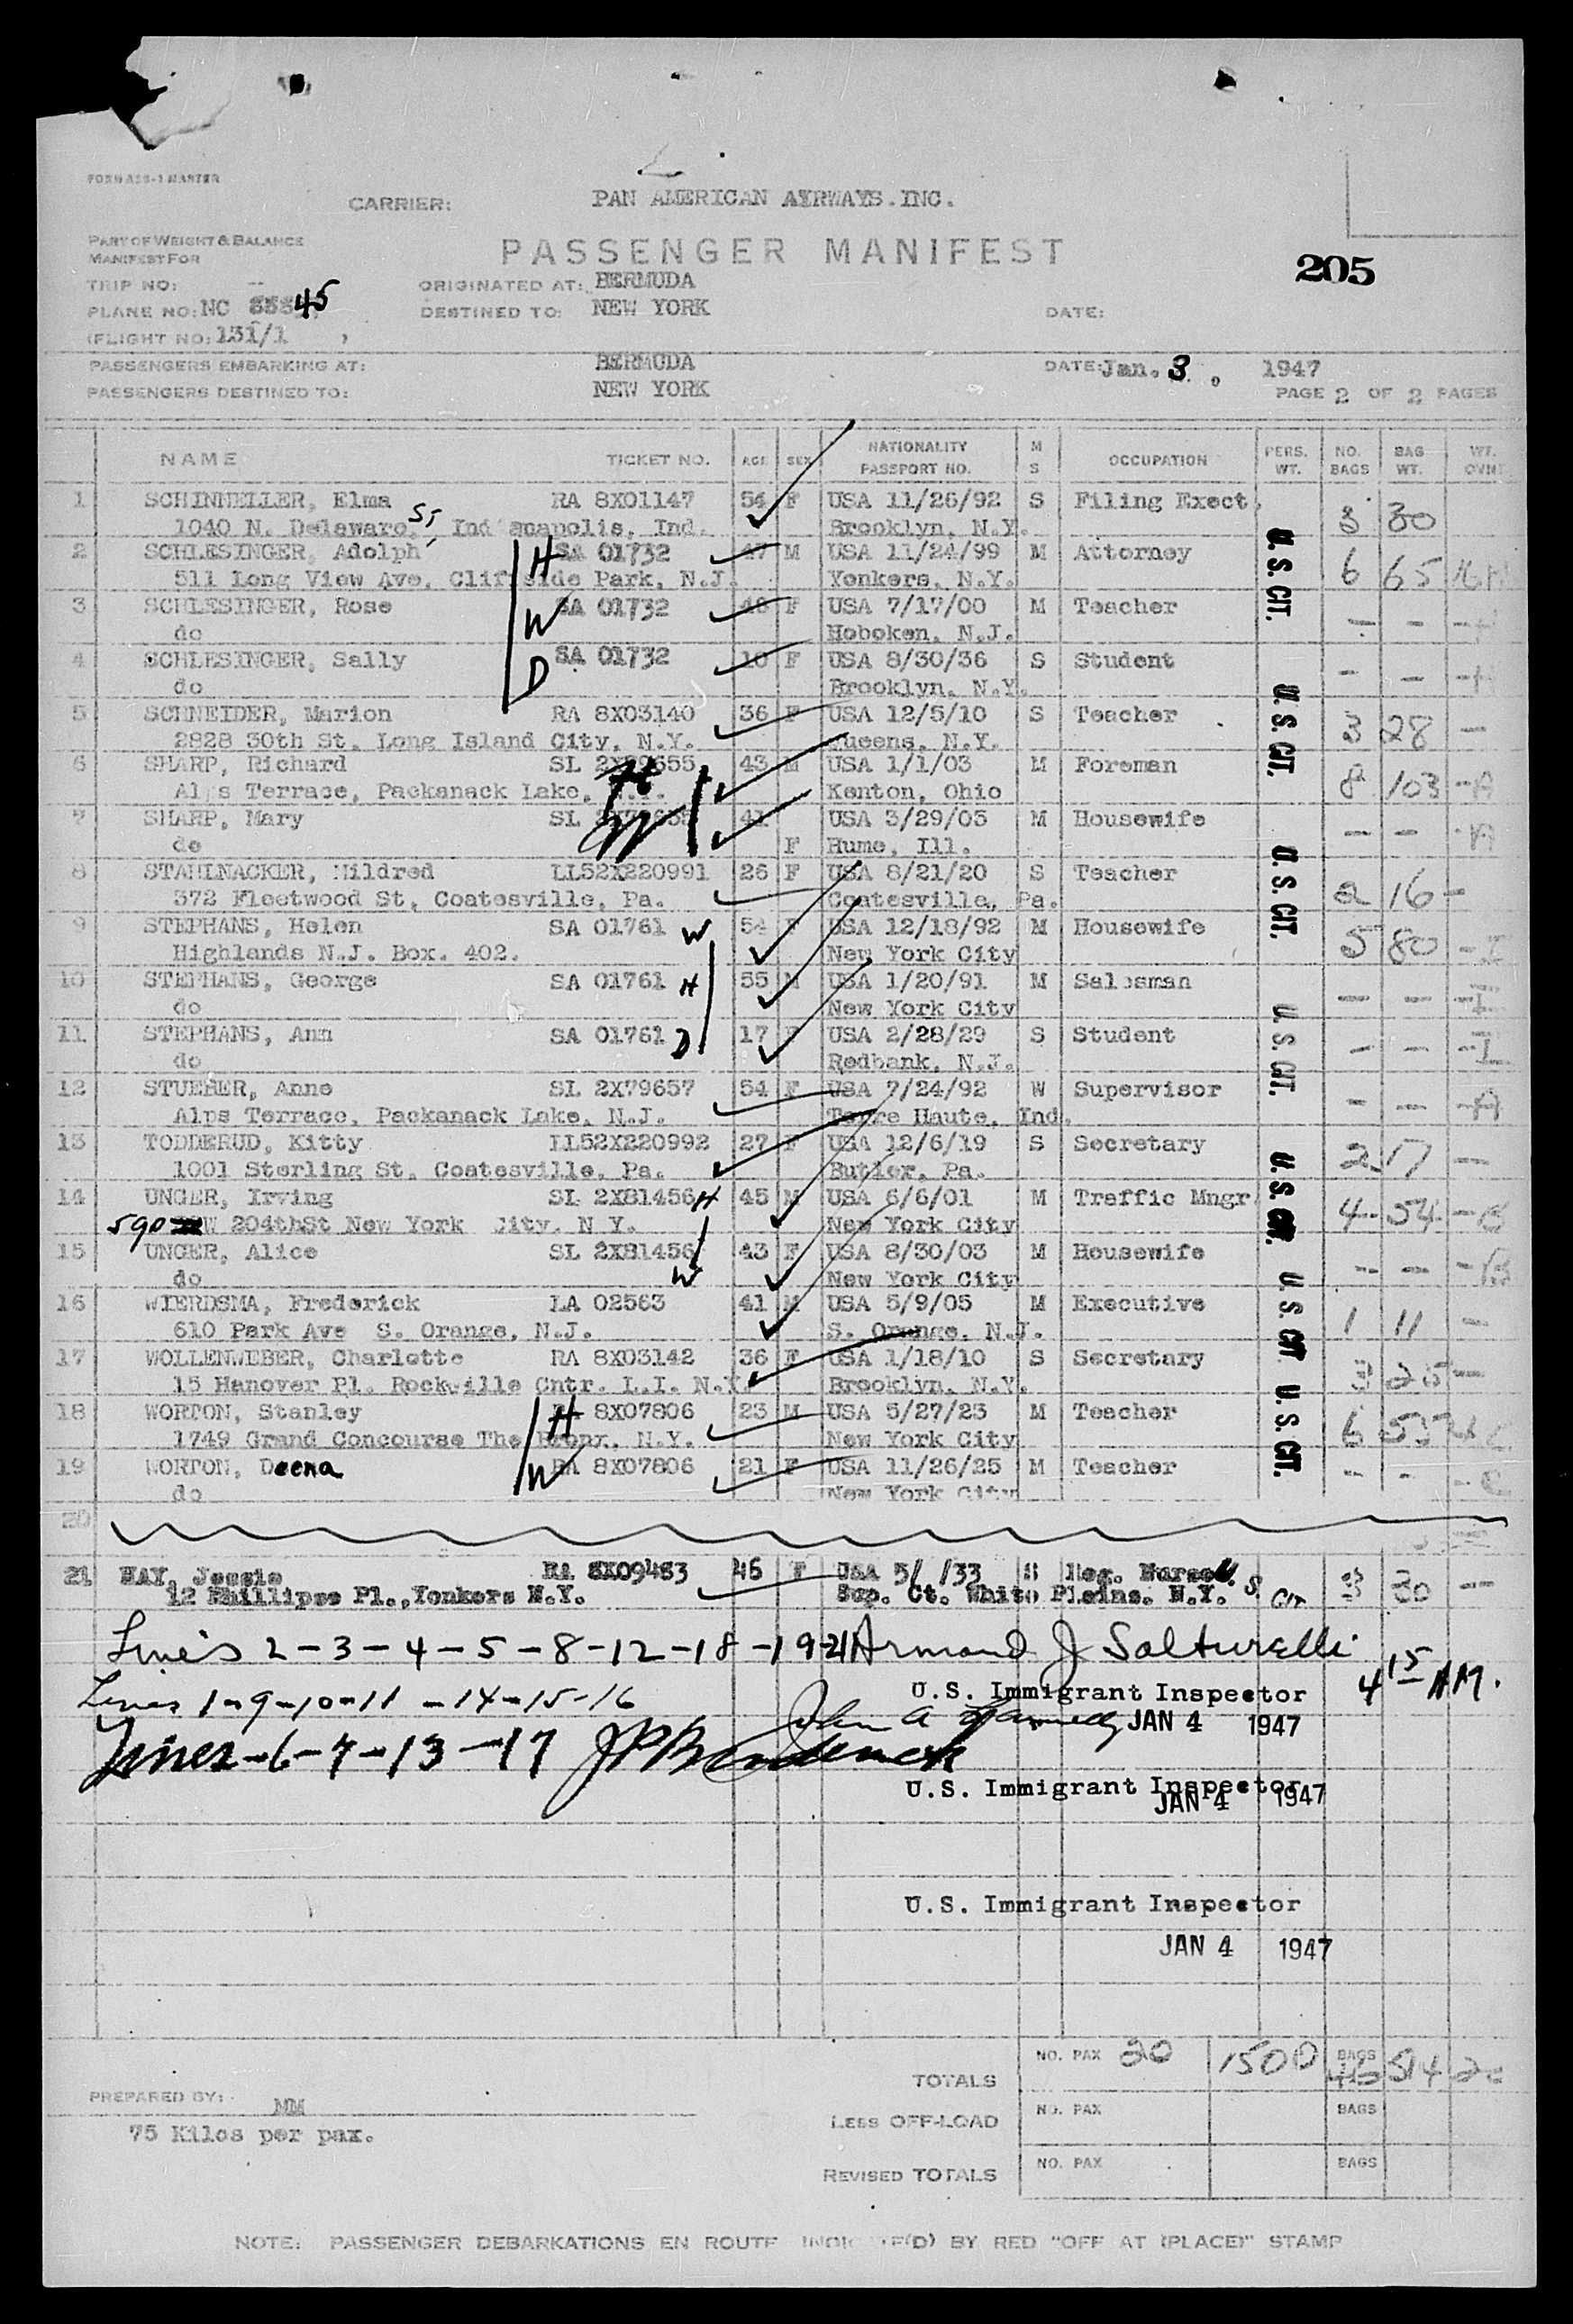 FORM ASS-1 MASTER
CARRIER: PAN AMERICAN AYRWAYS.INC.
PART OF WEIGHT & BALANCE
MANIFEST FOR
PASSENGER MANIFEST
205
TRIP NO: -- ORIGINATED AT: BERMUDA
PLANE NO: NC 45 DESTINED TO: NEW YORK DATE:
(FLIGHT NO: 131/1 )
PASSENGERS EMBARKING AT: BERMUDA DATE: Jan. 3, 1947
PASSENGERS DESTINED TO: NEW YORK PAGE 2 OF 2 PAGES
NAME TICKET NO. AGE SEX NATIONALITY PASSPORT NO. M S OCCUPATION PERS. WT. NO. BAGS BAG WT. WT. OVNT
1 SCHINHELLER, Elma RA 8X01147 54 F USA 11/26/92 S Filing Exect.
1040 N. Delaware, St, Indianapolis, Ind. Brooklyn, N.Y. 3 30
2 SCHLESINGER, Adolph H SA 01732 47 M USA 11/24/99 M Attorney
511 Long View Ave, Cliffside Park, N.J. Yonkers, N.Y. 6 65 16
3 SCHLESINGER, Rose W SA 01732 46 F USA 7/17/00 M Teacher
do Hoboken, N.J. - - -
4 SCHLESINGER, Sally D SA 01732 10 F USA 8/30/36 S Student
do Brooklyn, N.Y. - - -
5 SCHNEIDER, Marion RA 8X03140 36 F USA 12/5/10 S Teacher
2828 30th St. Long Island City, N.Y. Queens, N.Y. 3 28 -
6 SHARP, Richard SL 2X79655 43 M USA 1/1/03 M Foreman
Alps Terrace, Packanack Lake, N.J. Kenton, Ohio 8 103 -A
7 SHARP, Mary SL 41 USA 3/29/05 M Housewife
do F Hume, Ill. - - -A
8 STAHLNACKER, Mildred LL52X220991 26 F USA 8/21/20 S Teacher
372 Fleetwood St, Coatesville, Pa. Coatesville, Pa. 2 16 -
9 STEPHANS, Helen SA 01761 W 54 F USA 12/18/92 M Housewife
Highlands N.J. Box. 402. New York City 5 80 -I
10 STEPHANS, George SA 01761 H 55 M USA 1/20/91 M Salesman
do New York City - - -I
11 STEPHANS, Ann SA 01761 D 17 F USA 2/28/29 S Student
do Redbank, N.J. - - -I
12 STUEBER, Anne SL 2X79657 54 F USA 7/24/92 W Supervisor
Alps Terrace, Packanack Lake, N.J. Terre Haute, Ind. - - -A
13 TODDERUD, Kitty LL52X220992 27 F USA 12/6/19 S Secretary
1001 Sterling St. Coatesville, Pa. Butler, Pa. 2 17 -
14 UNGER, Irving SL 2X81456 H 45 M USA 6/6/01 M Traffic Mngr
590 W 204thSt New York City. N Y. New York City 4 54 -B
15 UNGER, Alice SL 2X81456 W 43 F USA 8/30/03 M Housewife
do New York City - - -B
16 WIERDSMA, Frederick LA 02563 41 M USA 5/9/05 M Executive
610 Park Ave S. Orange, N.J. S. Orange, N.J. 1 11 -
17 WOLLENWEBER, Charlotte RA 8X03142 36 F USA 1/18/10 S Secretary
15 Hanover Pl. Rockville Cntr. L.I. N.Y. Brooklyn, N.Y. 3 25 -
18 WORTON, Stanley H RA 8X07806 23 M USA 5/27/23 M Teacher
1749 Grand Concourse The Bronx, N.Y. New York City 6 55
19 WORTON, Deena W RA 8X07806 21 F USA 11/26/25 M Teacher
do New York City - - -C
U.S. CIT.
U.S. CIT.
U.S. CIT.
U.S. CIT.
U.S. CIT.
U.S. CIT.
U.S. CIT.
20
21 HAY, Jessie RA 8X09483 46 F USA 5/ /33 S Reg. Nurse U.S. CIT 3 30 --
12 Phillipse Pl., Yonkers N.Y. Sup. Ct. White Plains. N.Y.
Line's 2-3-4-5-8-12-18-19-21 Armand J Salturelli 4 15 AM.
Lines 1-9-10-11-14-15-16 U.S. Immigrant Inspector
John A JAN 4 1947
Lines-6-7-13-17
U.S. Immigrant Inspector
JAN 4 1947
U.S. Immigrant Inspector
JAN 4 1947
TOTALS NO. PAX 20 1500 BAGS 46 514
PREPARED BY: MM
LESS OFF-LOAD NO. PAX BAGS
75 Kilos per pax.
REVISED TOTALS NO. PAX BAGS
NOTE: PASSENGER DEBARKATIONS EN ROUTE INDICATE(D) BY RED "OFF AT (PLACE)" STAMP